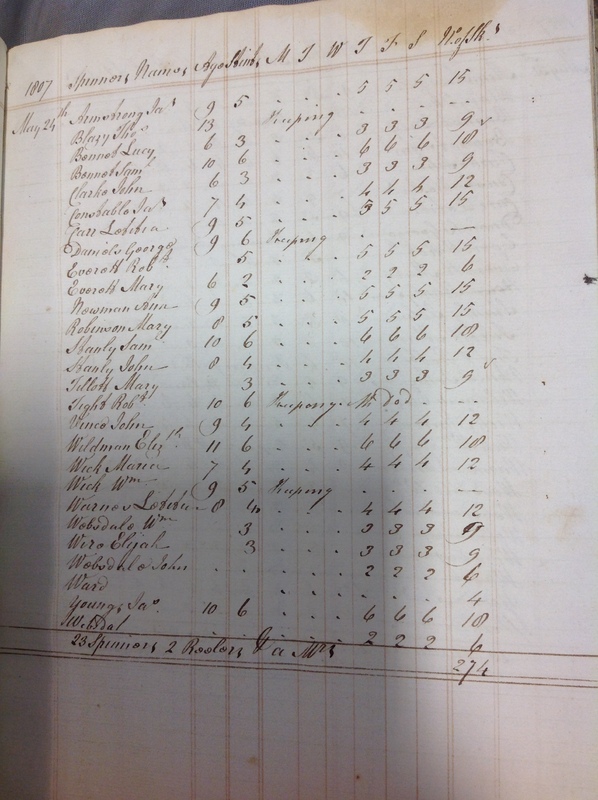 1807 Spinners Names Age Stint M T W T F S No of Sk.s
May 24th Armstrong Jas 9 5 . . . 5 5 5 15
Blazy Thos 13 Keeping . . . . --
Bennet Lucy 6 3 . . . 3 3 3 9
Bennet Saml 10 6 . . . 6 6 6 18
Clarke John 6 3 . . . 3 3 3 9
Constable Jas 7 4 . . . 4 4 4 12
Carr Letitia 9 5 . . . 5 5 5 15
Daniels George 9 6 Keeping . --
Everett Robt 5 . . . 5 5 5 15
Everett Mary 6 2 . . . 2 2 2 6
Newman Ana 9 5 . . . 5 5 5 15
Robinson Mary 8 5 . . . 5 5 5 15
Stanly Saml 10 6 . . . 6 6 6 18
Stanly John 8 4 . . . 4 4 4 12
Tillott Mary 3 . . . 3 3 3 9
Tight Robt 10 6 Keeping . . --
Vince John 9 4 . . . 4 4 4 12
Wildman Elizth 11 6 . . . 6 6 6 18
Wick Maria 7 4 . . . 4 4 4 12
Wick Wm 9 5 Keeping . . --
Warnes Letitia 8 4 . . . 4 4 4 12
Websdale Wm 3 . . . 3 3 3 9
Wire Elijah 3 . . . 3 3 3 9
Websdale John . . . . . 2 2 2 6
Ward . . . 4
Youngs Jas 10 6 . . . 6 6 6 18
Websdal 2 2 2 6
23 Spinners 2 Reelers & a Mrs
274